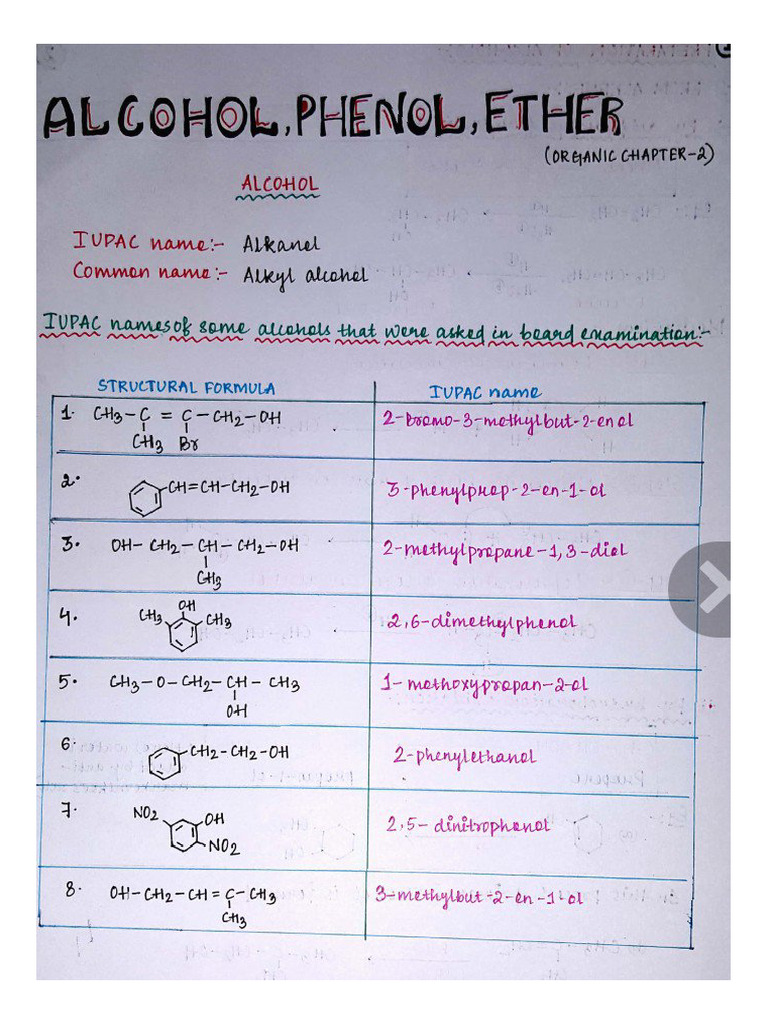 ALCOHOL, PHENOL, ETHER
(ORGANIC CHAPTER-2)
ALCOHOL
IUPAC name:- Alkanol
Common name:- Alkyl alcohol
IUPAC names of some alcohols that were asked in board examination:-
STRUCTURAL FORMULA IUPAC name
1. CH3-C=C-CH2-OH 2-bromo-3-methylbut-2-enol
CH3 Br
2. CH=CH-CH2-OH 3-phenylprop-2-en-1-ol
3. OH-CH2-CH-CH2-OH 2-methylpropane-1,3-diol
CH3
4. CH3 OH CH3 2,6-dimethylphenol
5. CH3-O-CH2-CH-CH3 1-methoxypropan-2-ol
OH
6. CH2-CH2-OH 2-phenylethanol
7. NO2 OH 2,5-dinitrophenol
NO2
8. OH-CH2-CH=C-CH3 3-methylbut-2-en-1-ol
CH3